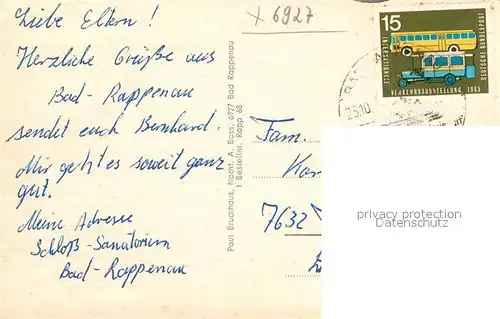 Liebe Eltern!
Herzliche Grüße aus
Bad-Rappenau
sendet euch Bernhard.
Mir geht es soweit ganz
gut.
Meine Adresse
Schloß-Sanatorium
Bad-Rappenau
x 6927
Paul Bruchhaus, Nachf. A. Boss, 6927 Bad Rappenau
Bestellnr. Rapp 68
15
DEUTSCHE BUNDESPOST
VERKEHRSAUSSTELLUNG 1965
23.10
Fam.
7632
privacy protection
www.ansichtskarten-center.de